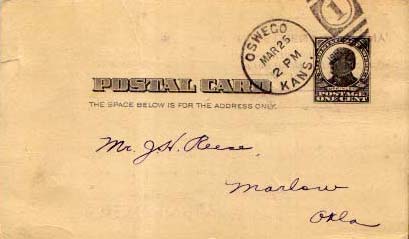 1
OSWEGO
MAR 25
2 PM
KANS.
POSTAL CARD
THE SPACE BELOW IS FOR THE ADDRESS ONLY.
POSTAGE
ONE CENT
Mr. J.H. Reese,
Marlow
Okla